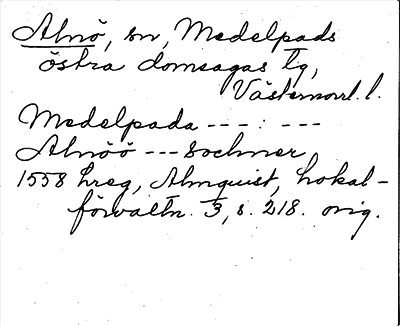 Alnö, sn, Medelpads
östra domsagas tg,
Västernorrl. l.
Medelpada --- : ---
Alnöö --- Sochner
1558 hreg, Almquist, Lokal-
förvaltn. 3, s. 218. orig.